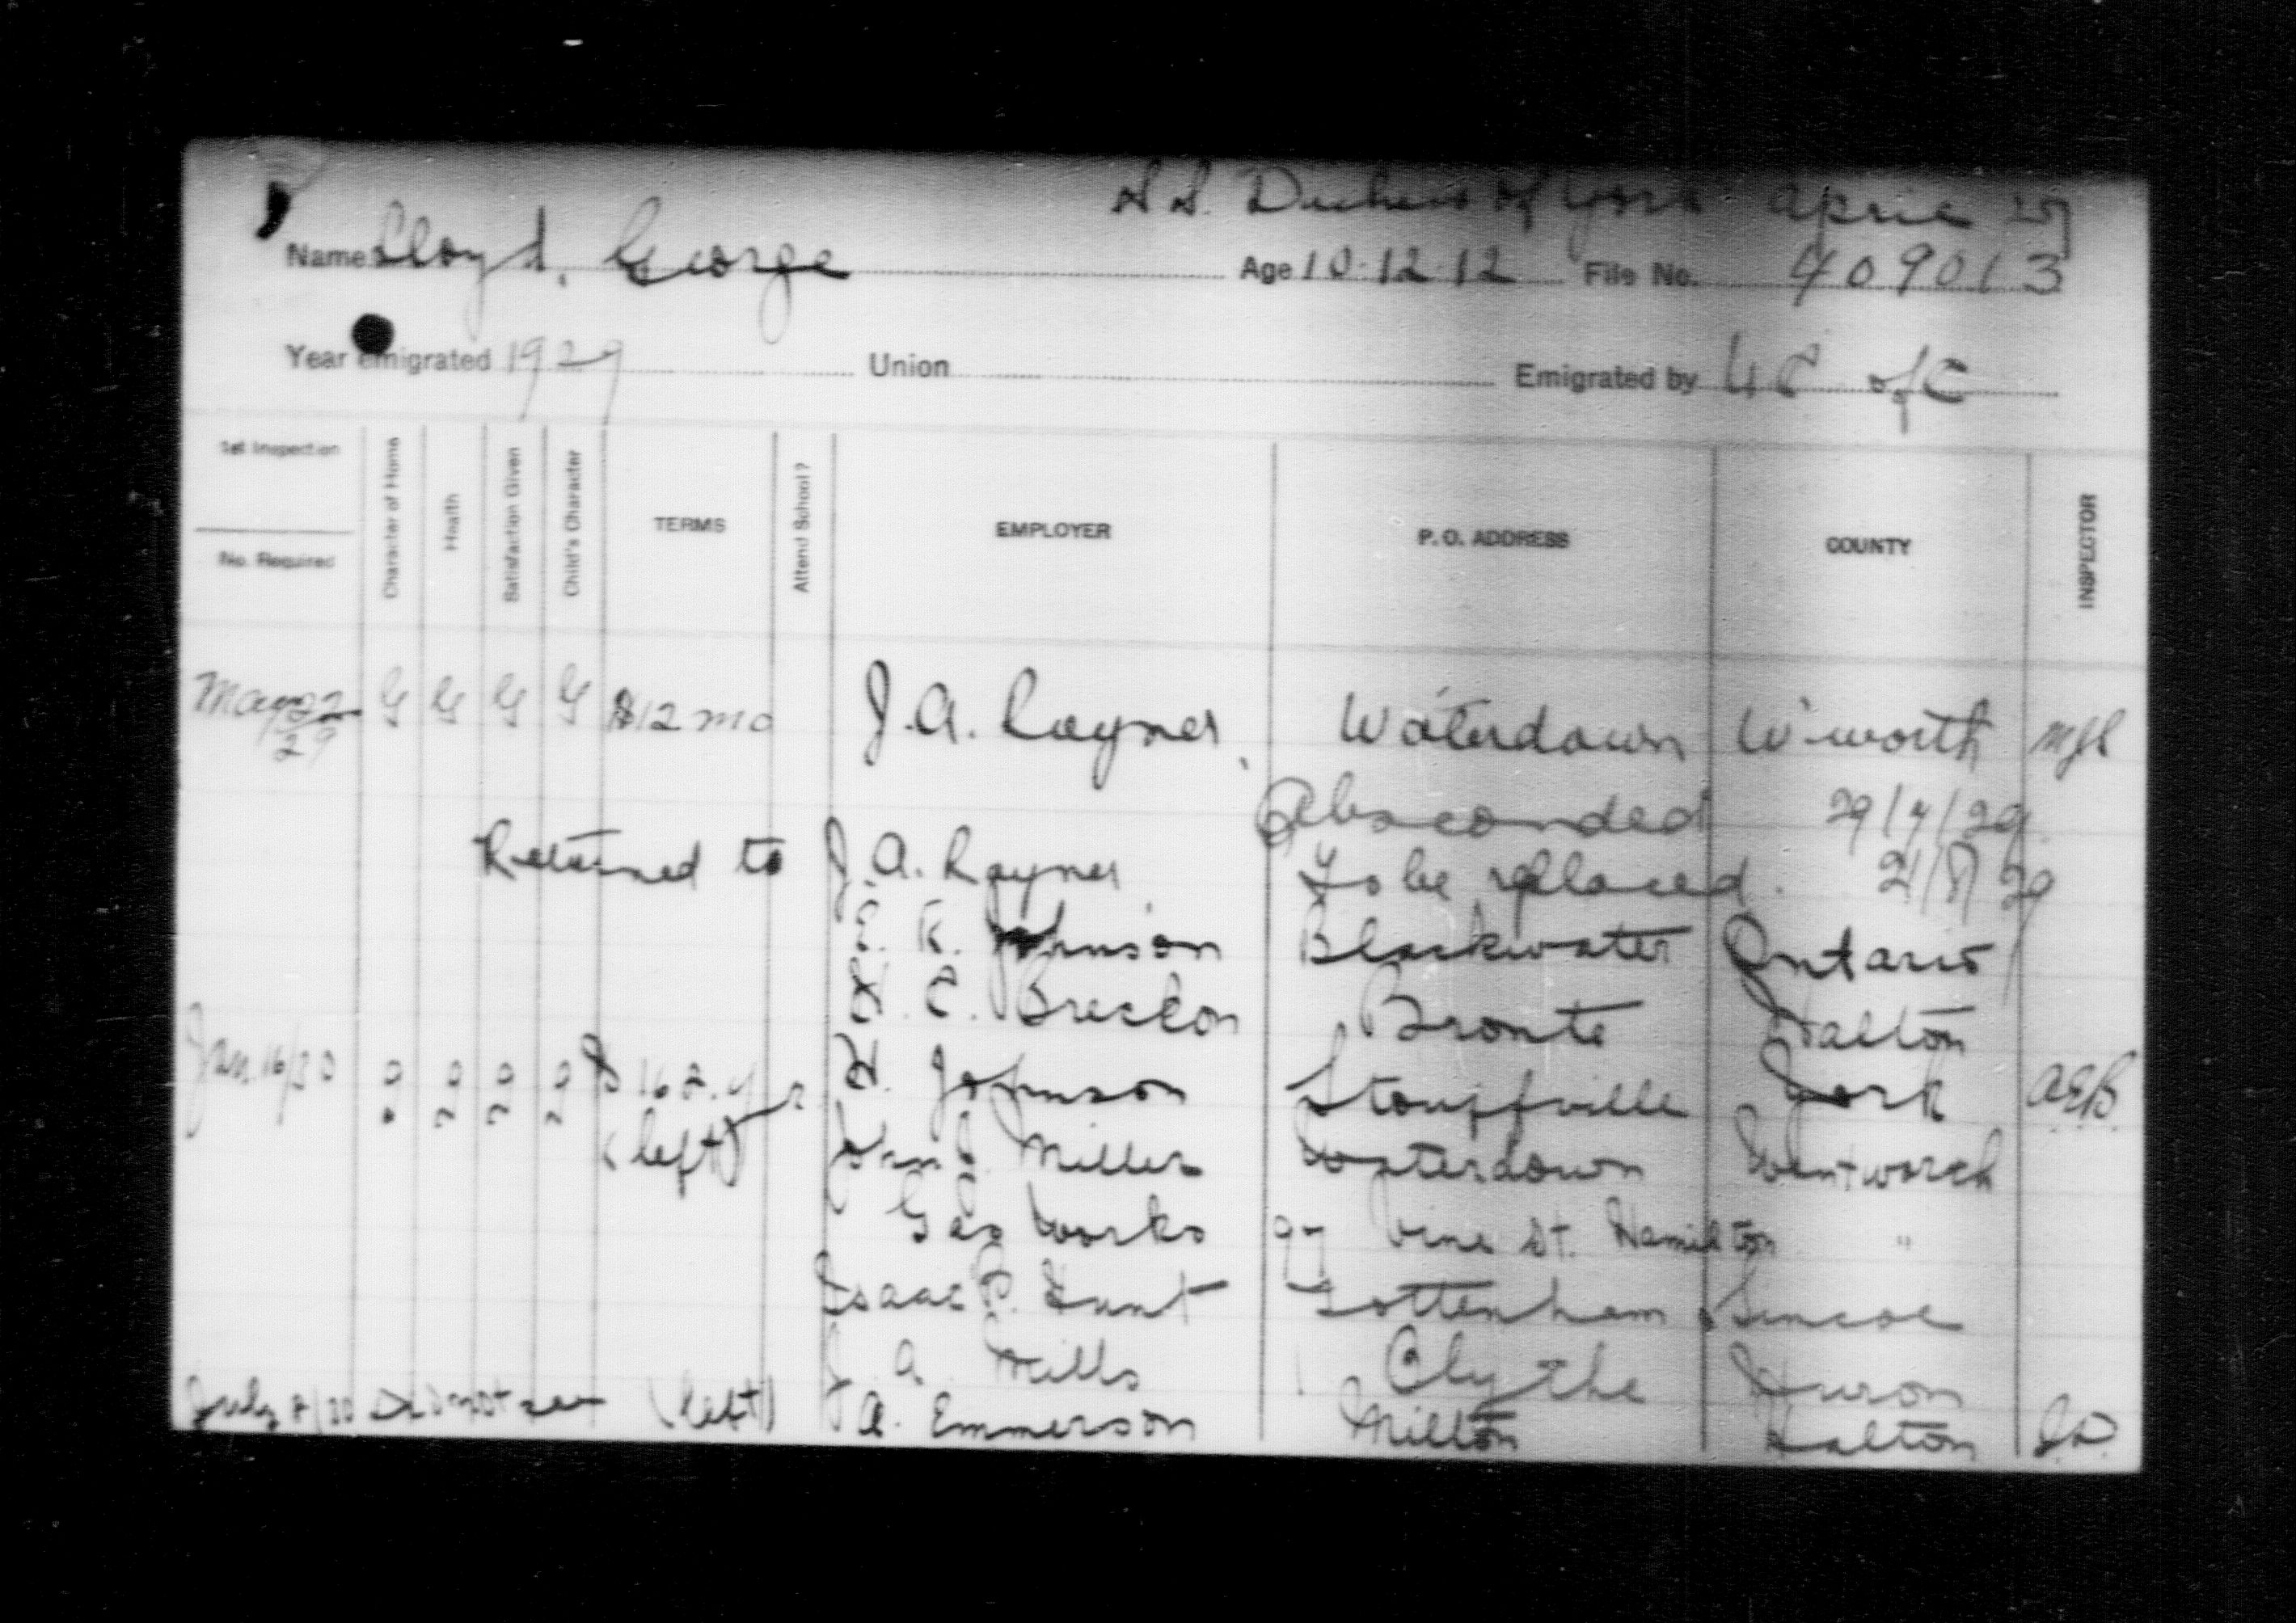 S.S. Duchess of York April 27
Name Lloyd, George Age 10.12.12 File No. 409013
Year emigrated 1929 Union Emigrated by U C of C
1st Inspection
No. Required
Character of Home
Health
Satisfaction Given
Child's Character
TERMS
Attend School?
EMPLOYER
P. O. ADDRESS
COUNTY
INSPECTOR
May 22/29 G G G G $12 mo J. A. Rayner, Waterdown W'worth
Absconded 29/7/29
Returned to J. A. Rayner To be replaced. 21/8/29
E. R. Johnson Blackwater Ontario
H. C. Breckon Bronte Halton
Jan. 16/30 g g g g $162. yr H. Johnson Stouffville York A.E.B.
(left) John J. Miller Waterdown Wentworth
Gas Works 97 Vine St. Hamilton "
Isaac P. Hunt Tottenham Simcoe
J. A. Mills Blythe Huron
July 8/30 Did not see (left) A. Emmerson Milton Halton